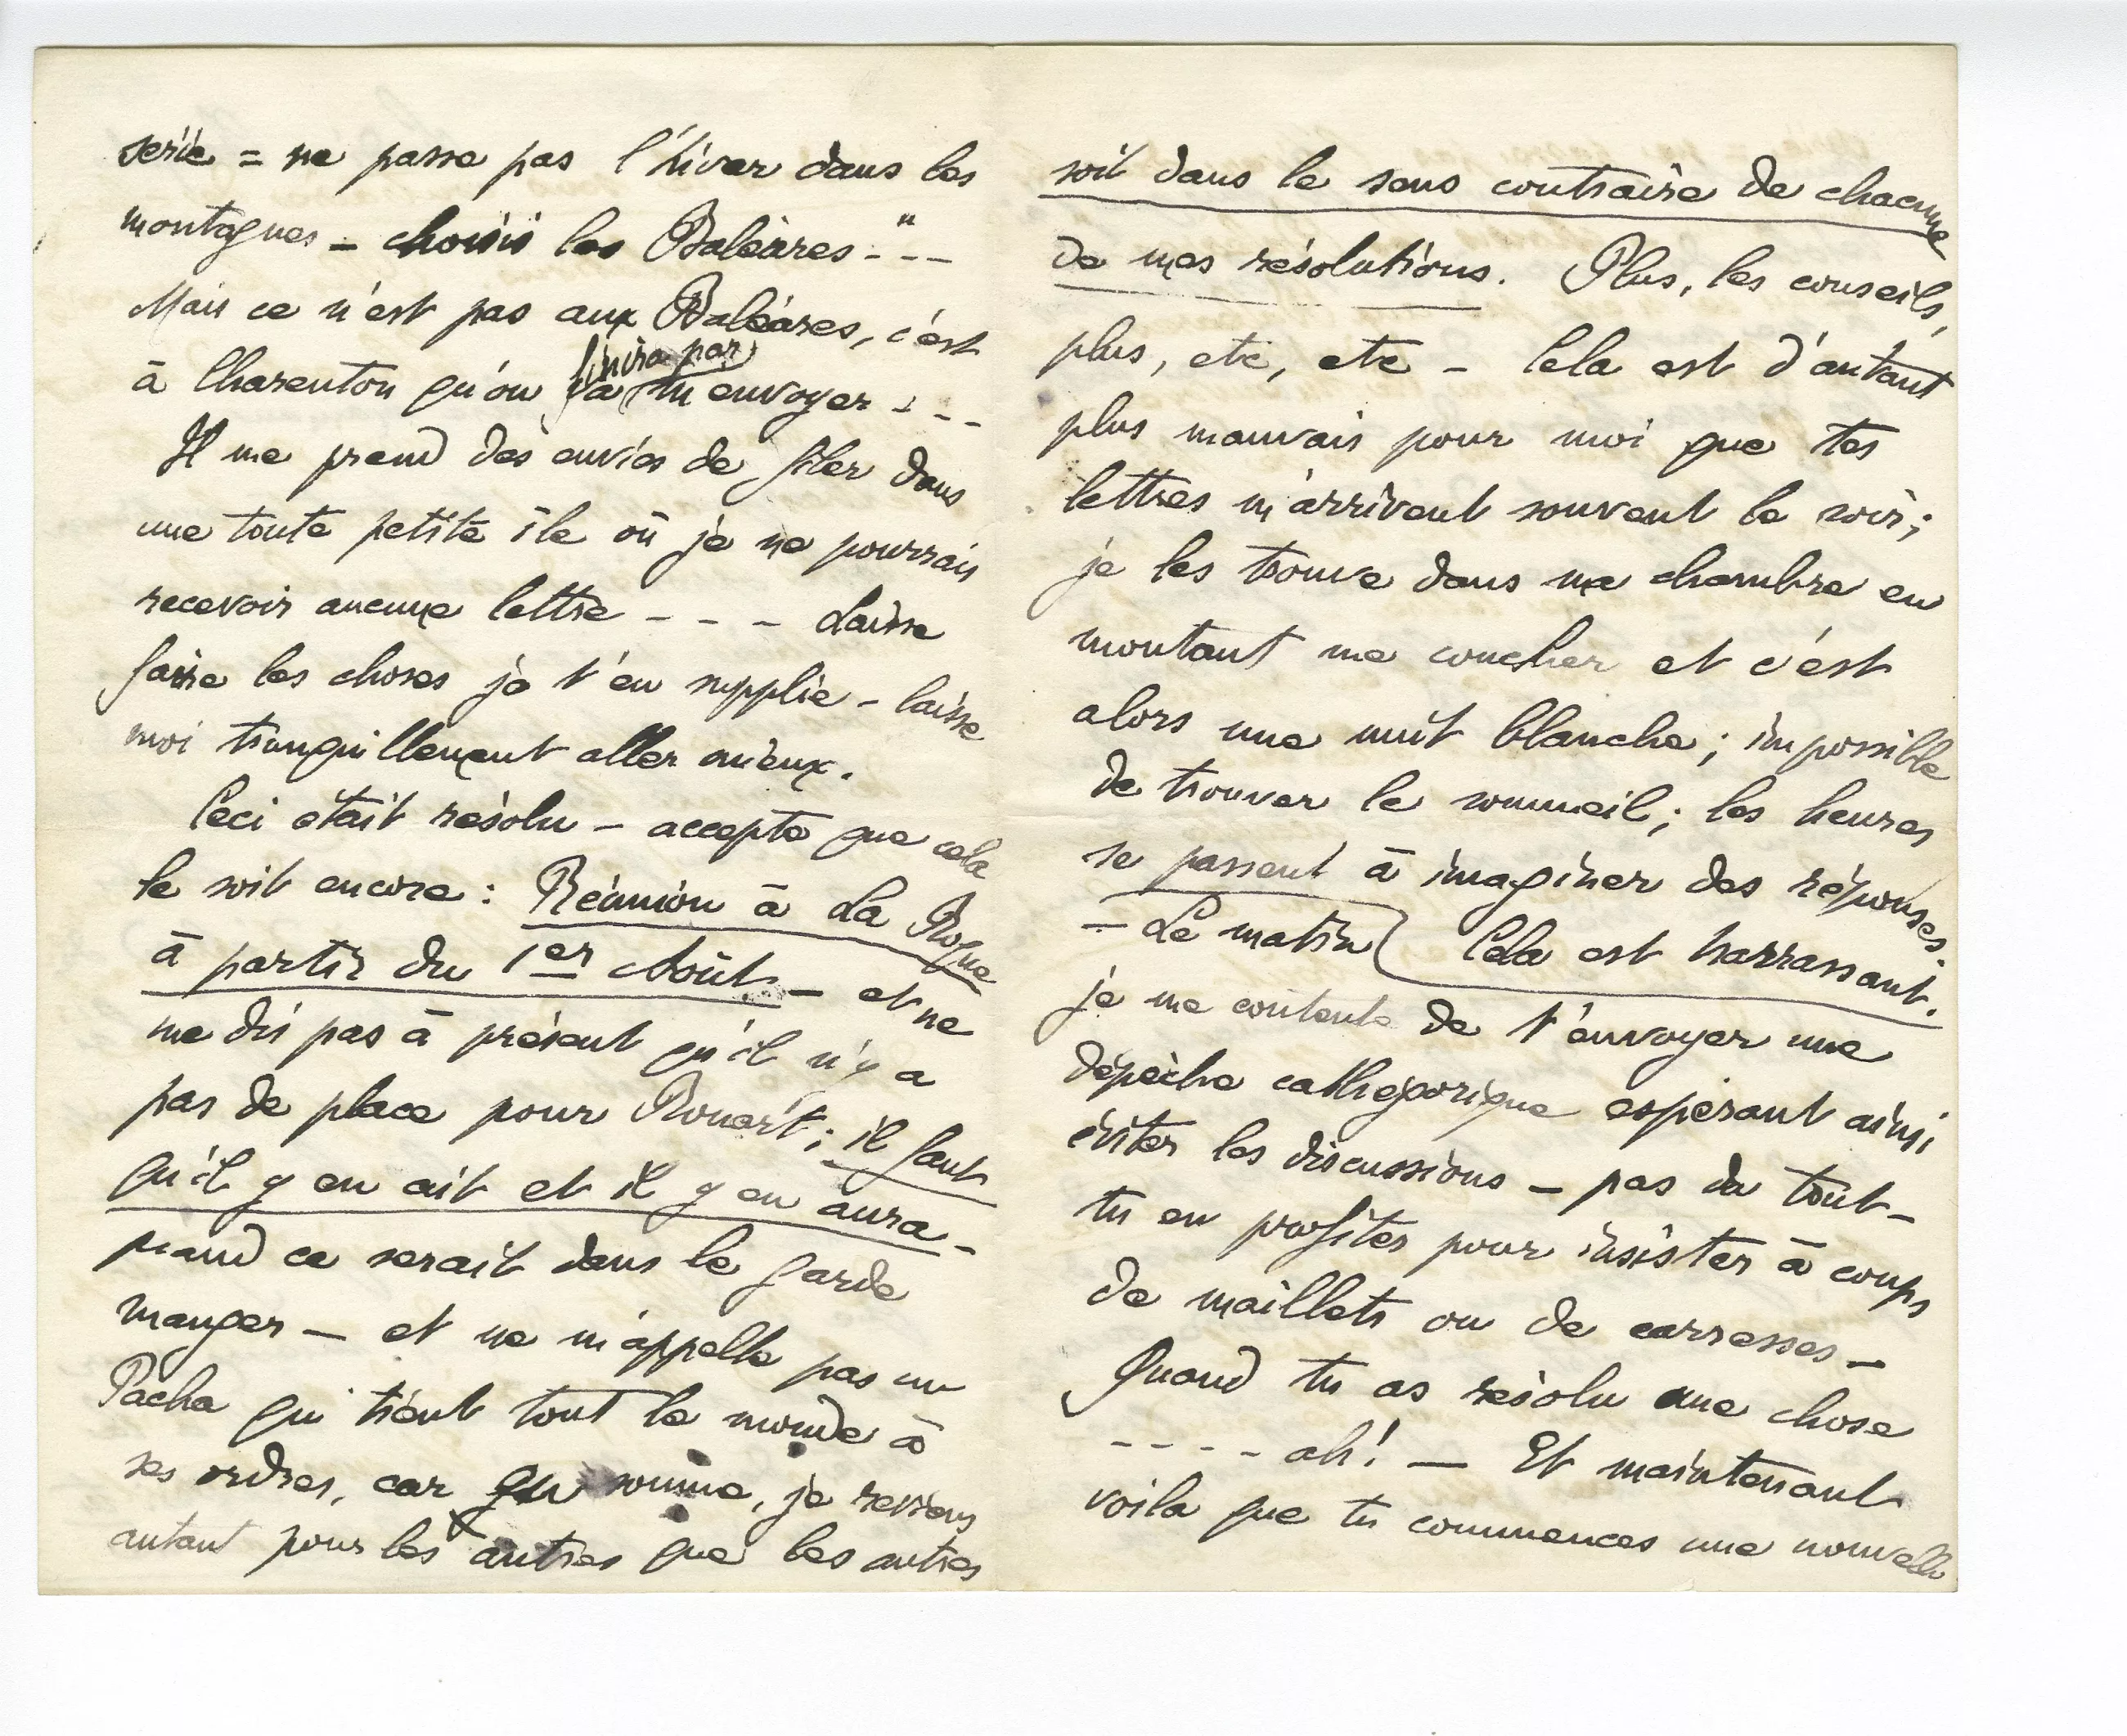 série = ne passe pas l'hiver dans les
montagnes – choisis les Baléares - " - -
Mais ce n'est pas aux Baléares, c'est
finira par
à Charenton qu'on va m'envoyer - - -
Il me prend des envies de filer dans
une toute petite île où je ne pourrais
recevoir aucune lettre - - - Laisse
faire les choses je t'en supplie – laisse
moi tranquillement aller mieux.
Ceci était résolu – accepte que cela
le soit encore : Réunion à La Roque
à partir du 1er Août – et ne
me dis pas à présent qu'il n'y a
pas de place pour Rouart ; il faut
qu'il y en ait et il y en aura –
quand ce serait dans le garde
manger – et ne m'appelle pas un
Pacha qui tient tout le monde à
ses ordres, car en somme, je reviens
autant pour les autres que les autres
soit dans le sens contraire de chacune
de mes résolutions. Plus, les conseils,
plus, etc, etc – Cela est d'autant
plus mauvais pour moi que tes
lettres m'arrivent souvent le soir ;
je les trouve dans ma chambre en
montant me coucher et c'est
alors une nuit blanche ; impossible
de trouver le sommeil ; les heures
se passent à imaginer des réponses.
– Le matin Cela est harrassant.
je me contente de t'envoyer une
dépèche cathégorique espérant ainsi
éviter les discussions – pas du tout –
tu en profites pour insister à coups
de maillets ou de carresses –
Quand tu as résolu une chose
- - - - ah! – Et maintenant
voila que tu commences une nouvelle